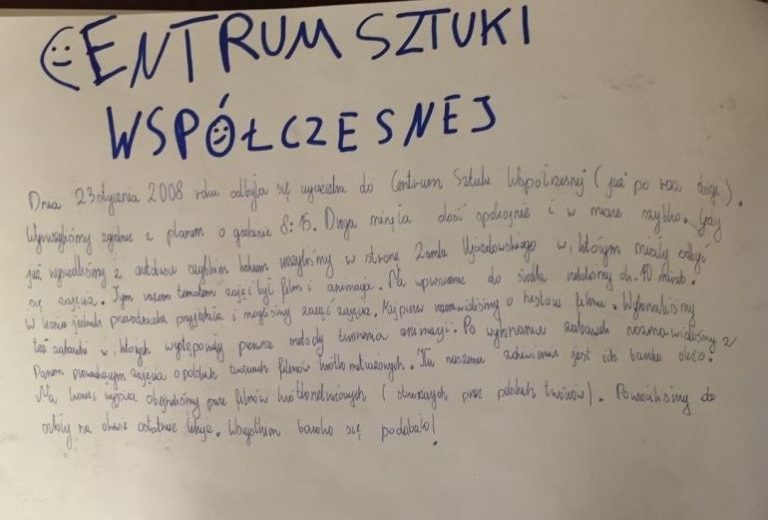 CENTRUM SZTUKI
WSPÓŁCZESNEJ
Dnia 23 stycznia 2008 roku odbyła się wycieczka do Centrum Sztuki Współczesnej (już po raz drugi).
Wyruszyliśmy zgodnie z planem o godzinie 8:15. Droga minęła dość spokojnie i w miarę szybko. Gdy
już wysiedliśmy z autokaru szybkim krokiem ruszyliśmy w stronę Zamku Ujazdowskiego w, którym miały odbyć
się zajęcia. Tym razem tematem zajęć był film i animacja. Na wpuszczenie do środka czekaliśmy ok. 10 minut.
W końcu jednak przyjęcia i mogliśmy zacząć zajęcia. Najpierw rozmawialiśmy o historii filmu. Wykonaliśmy
też zabawki w, których występowały pierwsze metody tworzenia animacji. Po wykonaniu zabawek rozmawialiśmy z
Panem prowadzącym zajęcia o polskich twórcach filmów krótkometrażowych. Ku naszemu zdziwieniu jest ich bardzo dużo.
Na koniec obejrzeliśmy parę filmów krótkometrażowych (stworzonych przez polskich twórców). Powróciliśmy do
szkoły na dwie ostatnie lekcje. Wszystkim bardzo się podobało!